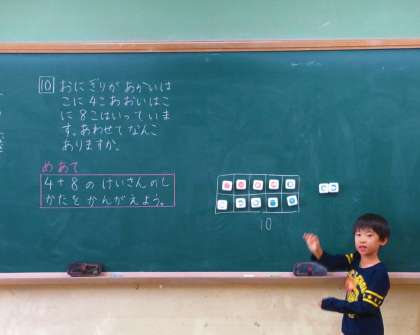 10 おにぎりが あかいは
こに 4こ あおいはこ
に 8こはいっていま
す。あわせてなんこ
ありますか。
めあて
4+8 の けいさんのし
かたを かんがえよう。
10